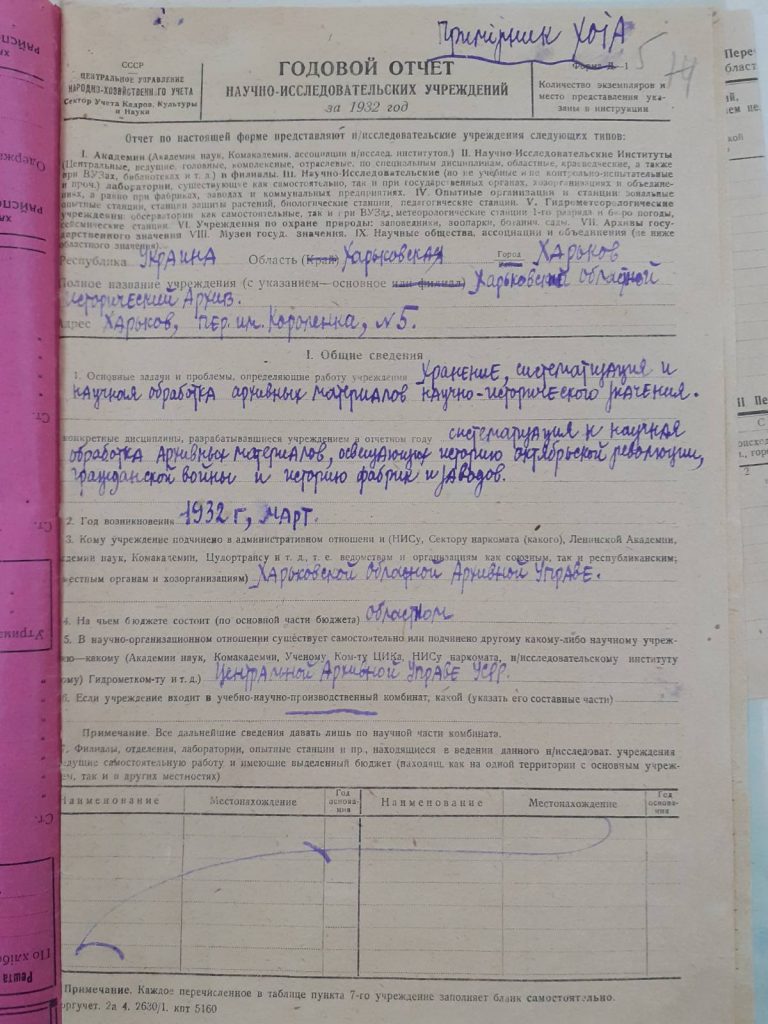 Примірник ХОІА
СССР
ЦЕНТРАЛЬНОЕ УПРАВЛЕНИЕ
НАРОДНО-ХОЗЯЙСТВЕННОГО УЧЕТА
Сектор Учета Кадров, Культуры
и Науки
ГОДОВОЙ ОТЧЕТ
НАУЧНО-ИССЛЕДОВАТЕЛЬСКИХ УЧРЕЖДЕНИЙ
за 1932 год
Форма Д-1
Количество экземпляров и
место представления ука-
заны в инструкции
Отчет по настоящей форме представляют н/исследовательские учреждения следующих типов:
I. Академии (Академия наук, Комакадемия, ассоциации н/исслед. институтов.) II. Научно-Исследовательские Институты
(Центральные, ведущие, головные, комплексные, отраслевые, по специальным дисциплинам, областные, краеведческие, а также
при ВУЗах, библиотеках и т. д.) и филиалы. III. Научно-Исследовательские (но не учебные и не контрольно-испытательные
и проч.) лаборатории, существующие как самостоятельно, так и при государственных органах, хозорганизациях и объедине-
ниях, а равно при фабриках, заводах и коммунальных предприятиях. IV. Опытные организации и станции: зональные
опытные станции, станции защиты растений, биологические станции, педагогические станции. V. Гидрометеорологические
учреждения: обсерватории как самостоятельные, так и при ВУЗах, метеорологические станции 1-го разряда и бюро погоды,
сейсмические станции. VI. Учреждения по охране природы: заповедники, зоопарки, ботанич. сады. VII. Архивы госу-
дарственного значения VIII. Музеи госуд. значения. IX. Научные общества, ассоциации и объединения (не ниже
областного значения).
Республика Украина Область (Край) Харьковская Город Харьков
Полное название учреждения (с указанием—основное или филиал) Харьковский Областной
Исторический Архив.
Адрес Харьков, пер. им. Короленка, №5.
I. Общие сведения
1. Основные задачи и проблемы, определяющие работу учреждения Хранение, систематизация и
научная обработка архивных материалов научно-исторического значения.
конкретные дисциплины, разрабатывавшиеся учреждением в отчетном году систематизация и научная
обработка архивных материалов, освещающих историю октябрьской революции,
гражданской войны и историю фабрик и заводов.
2. Год возникновения 1932 г, март.
3. Кому учреждение подчинено в административном отношении (НИСу, Сектору наркомата (какого), Ленинской Академии,
Академии наук, Комакадемии, Цудортрайсу и т. д., т. е. ведомствам и организациям как союзным, так и республиканским;
местным органам и хозорганизациям) Харьковской Областной Архивной Управе.
4. На чьем бюджете состоит (по основной части бюджета) областном
5. В научно-организационном отношении существует самостоятельно или подчинено другому какому-либо научному учреж-
дению—какому (Академии наук, Комакадемии, Ученому Ком-ту ЦИКа, НИСу наркомата, н/исследовательскому институту
(какому) Гидрометком-ту и т. д.) Центральной Архивной Управе УСРР.
6. Если учреждение входит в учебно-научно-производственный комбинат, какой (указать его составные части)
Примечание. Все дальнейшие сведения давать лишь по научной части комбината.
7. Филиалы, отделения, лаборатории, опытные станции и пр., находящиеся в ведении данного н/исследоват. учреждения
ведущие самостоятельную работу и имеющие выделенный бюджет (находящ. как на одной территории с основным учреж-
ем, так и в других местностях)
Наименование Местонахождение Год основа-ния Наименование Местонахождение Год основа-ния
Примечание. Каждое перечисленное в таблице пункта 7-го учреждение заполняет бланк самостоятельно.
оргучет. 2а 4. 2630/1. кпт 5160